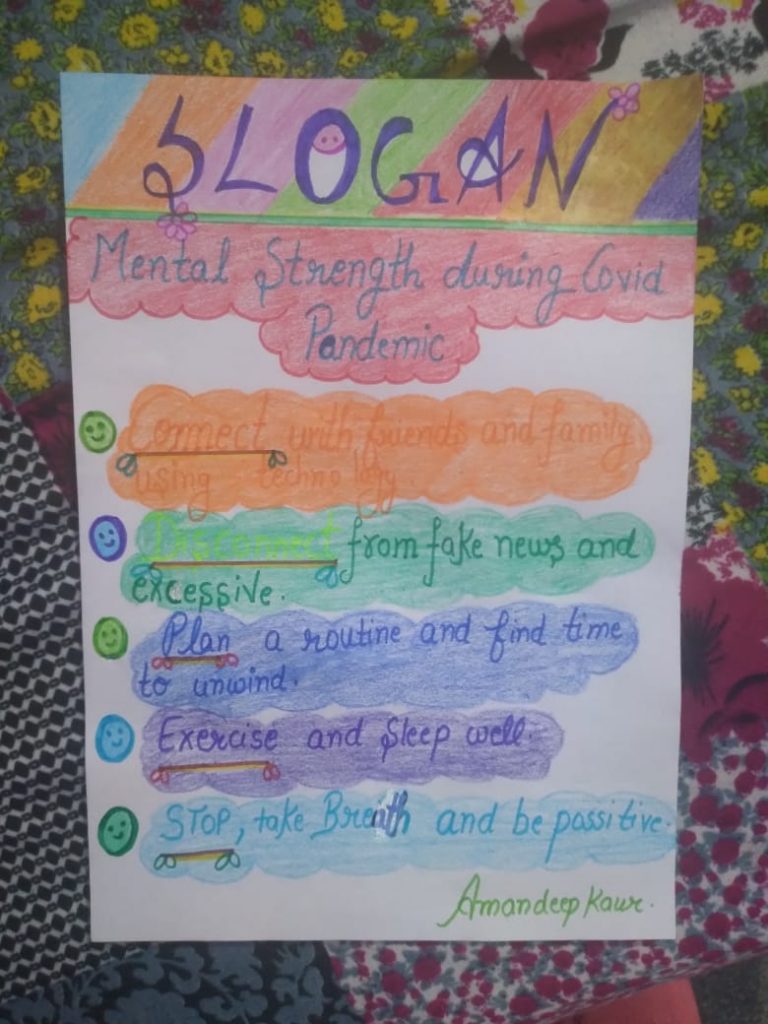 SLOGAN
Mental Strength during Covid
Pandemic
Connect with friends and family
using technology
Disconnect from fake news and
excessive.
Plan a routine and find time
to unwind.
Exercise and Sleep well.
STOP, take Breath and be possitive.
Amandeep Kaur.